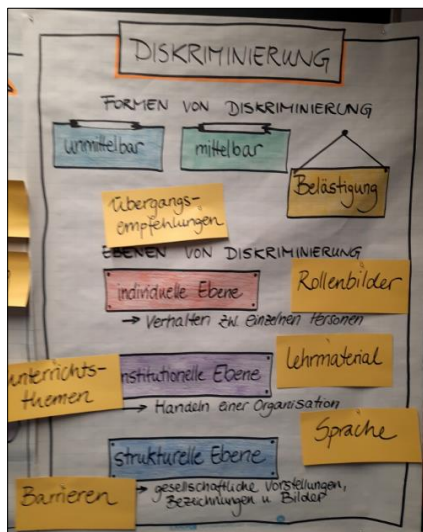 DISKRIMINIERUNG
FORMEN VON DISKRIMINIERUNG
unmittelbar
mittelbar
Belästigung
Übergangs-
empfehlungen
EBENEN VON DISKRIMINIERUNG
individuelle Ebene
Rollenbilder
→ Verhalten zw. einzelnen Personen
Lehrmaterial
unterrichts-
themen
institutionelle Ebene
→ Handeln einer Organisation
Sprache
strukturelle Ebene
→ gesellschaftliche Vorstellungen,
Bezeichnungen u Bilder
Barrieren